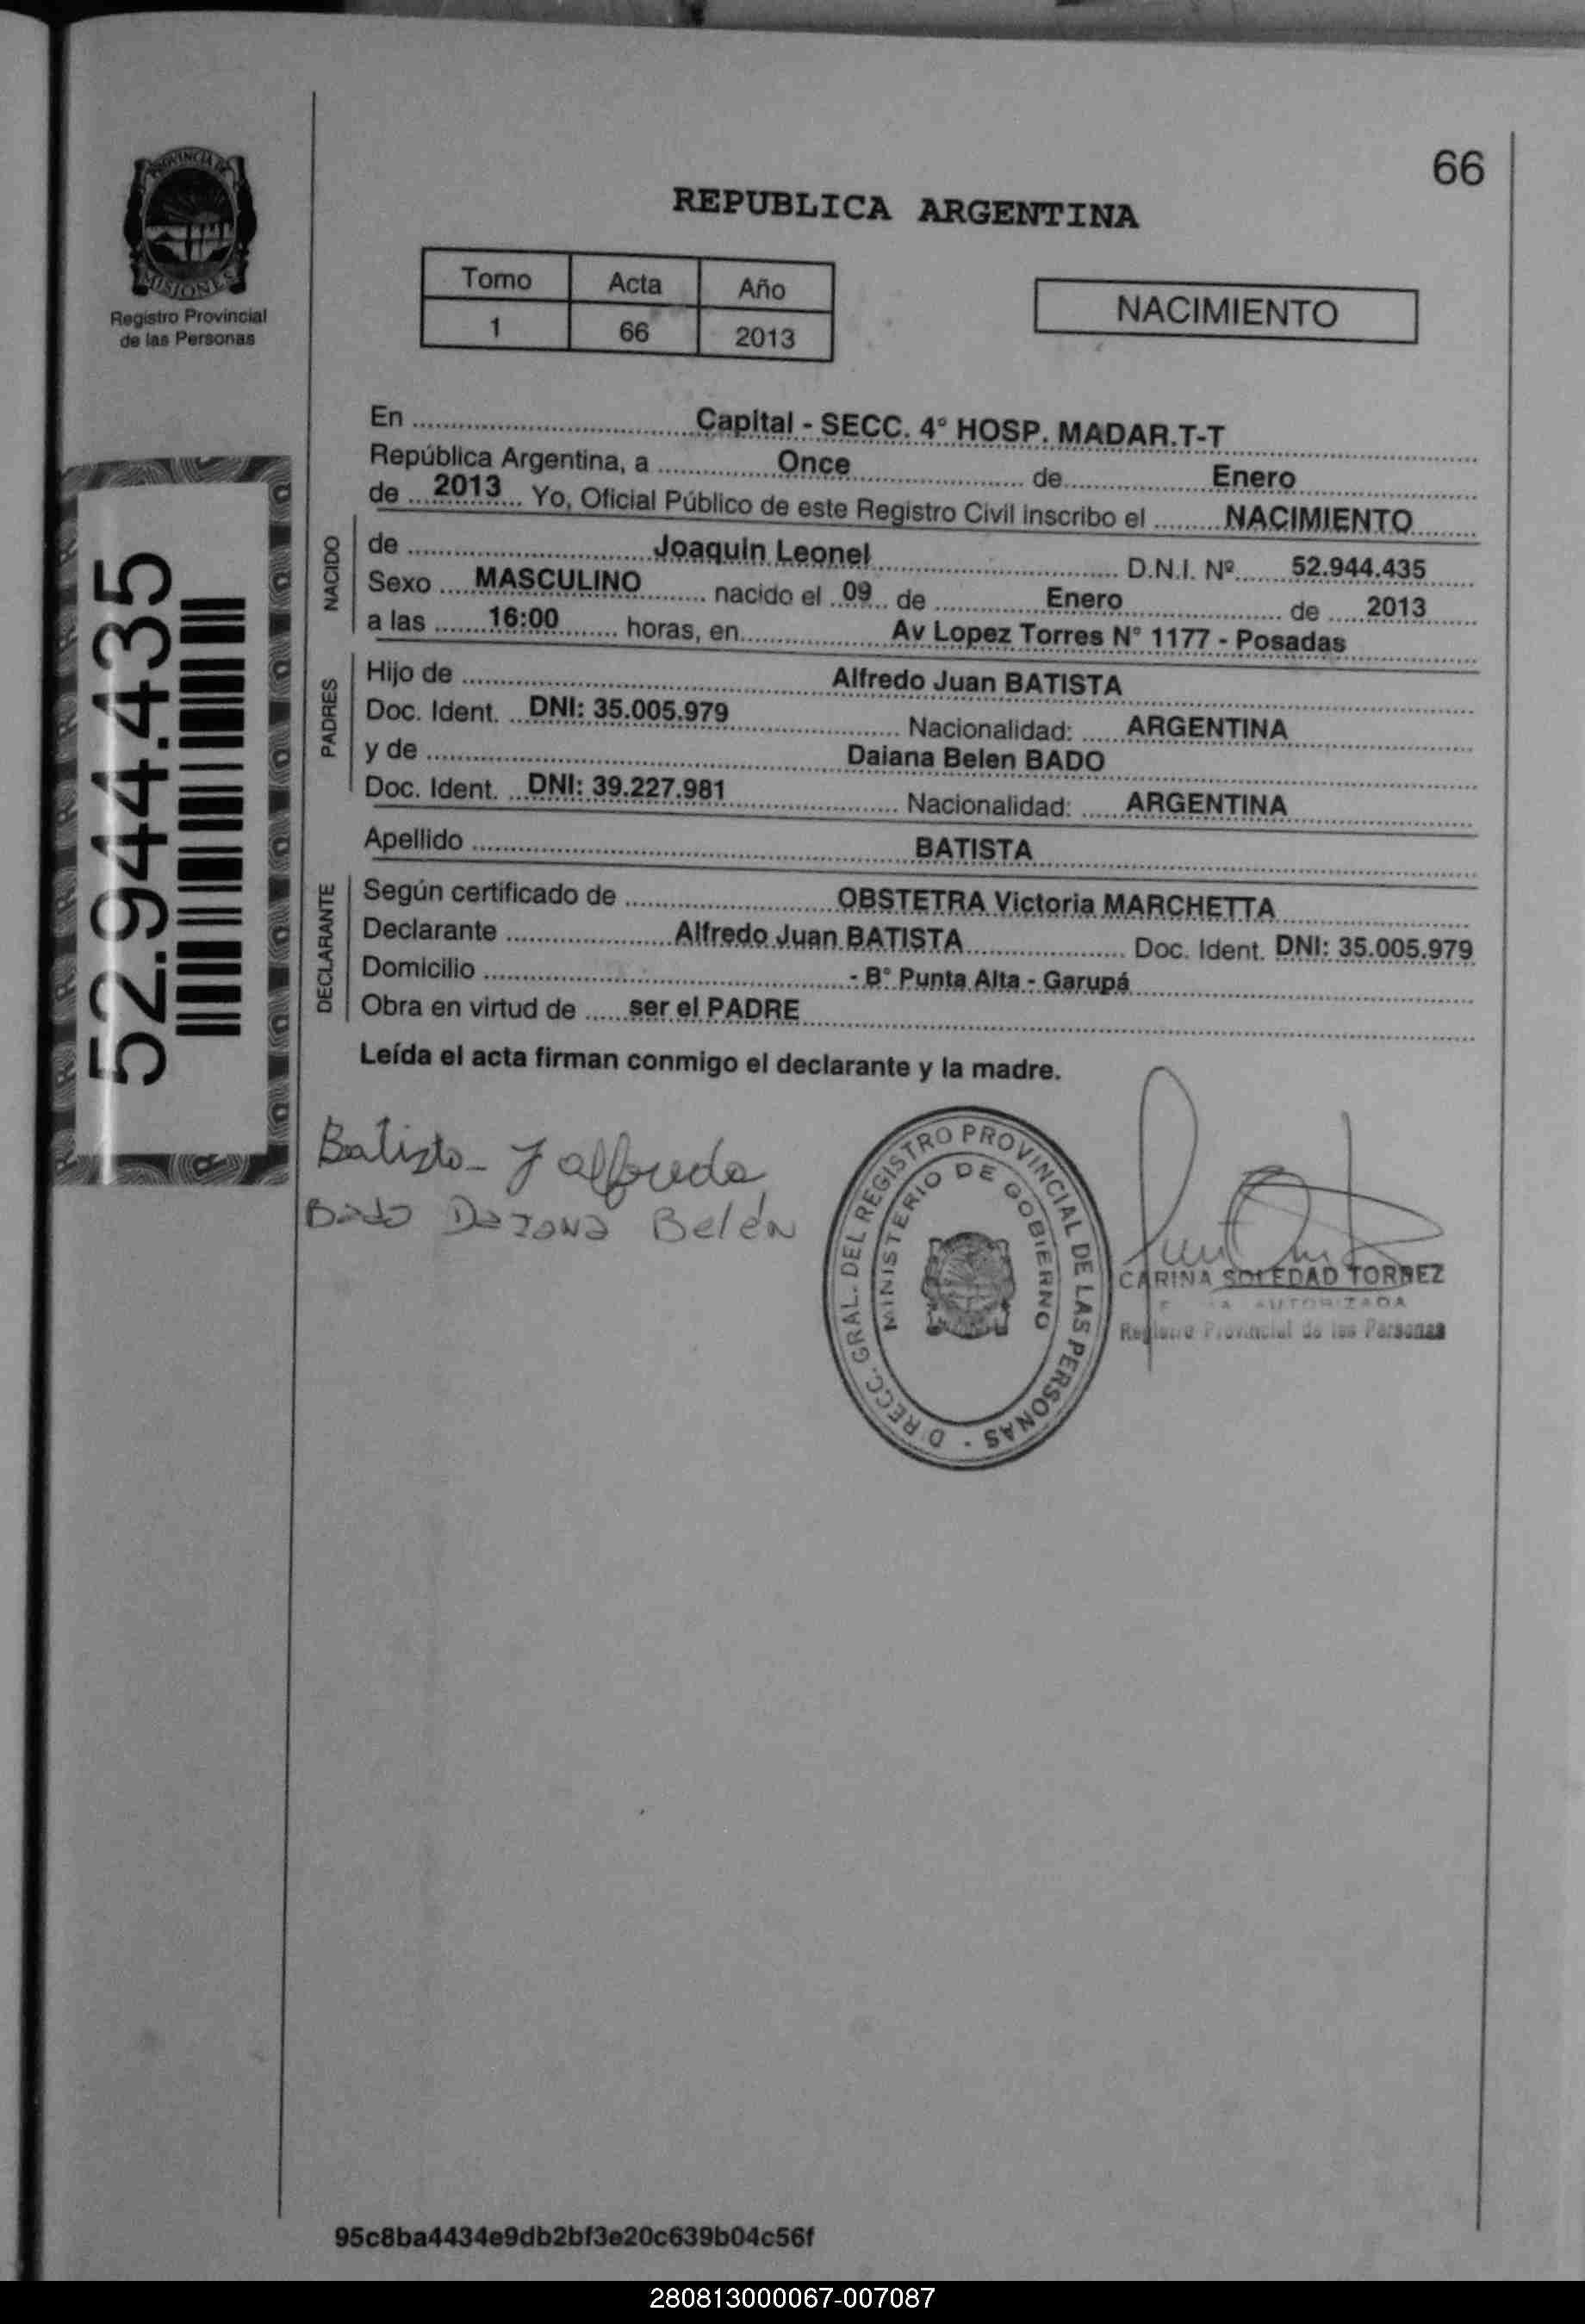 66
PROVINCIA DE
MISIONES
Registro Provincial
de las Personas
REPUBLICA ARGENTINA
Tomo Acta Año
1 66 2013
NACIMIENTO
52.944.435
En Capital - SECC. 4° HOSP. MADAR.T-T
República Argentina, a Once de Enero
de 2013 Yo, Oficial Público de este Registro Civil inscribo el NACIMIENTO
NACIDO
de Joaquin Leonel D.N.I. Nº 52.944.435
Sexo MASCULINO nacido el 09 de Enero de 2013
a las 16:00 horas, en Av Lopez Torres N° 1177 - Posadas
PADRES
Hijo de Alfredo Juan BATISTA
Doc. Ident. DNI: 35.005.979 Nacionalidad: ARGENTINA
y de Daiana Belen BADO
Doc. Ident. DNI: 39.227.981 Nacionalidad: ARGENTINA
Apellido BATISTA
DECLARANTE
Según certificado de OBSTETRA Victoria MARCHETTA
Declarante Alfredo Juan BATISTA Doc. Ident. DNI: 35.005.979
Domicilio - B° Punta Alta - Garupá
Obra en virtud de ser el PADRE
Leída el acta firman conmigo el declarante y la madre.
Batista J alfredo
Bado Daiana Belén
DIRECC. GRAL. DEL REGISTRO PROVINCIAL DE LAS PERSONAS -
MINISTERIO DE GOBIERNO
CARINA SOLEDAD TORREZ
AUTORIZADA
Registro Provincial de las Personas
95c8ba4434e9db2bf3e20c639b04c56f
280813000067-007087